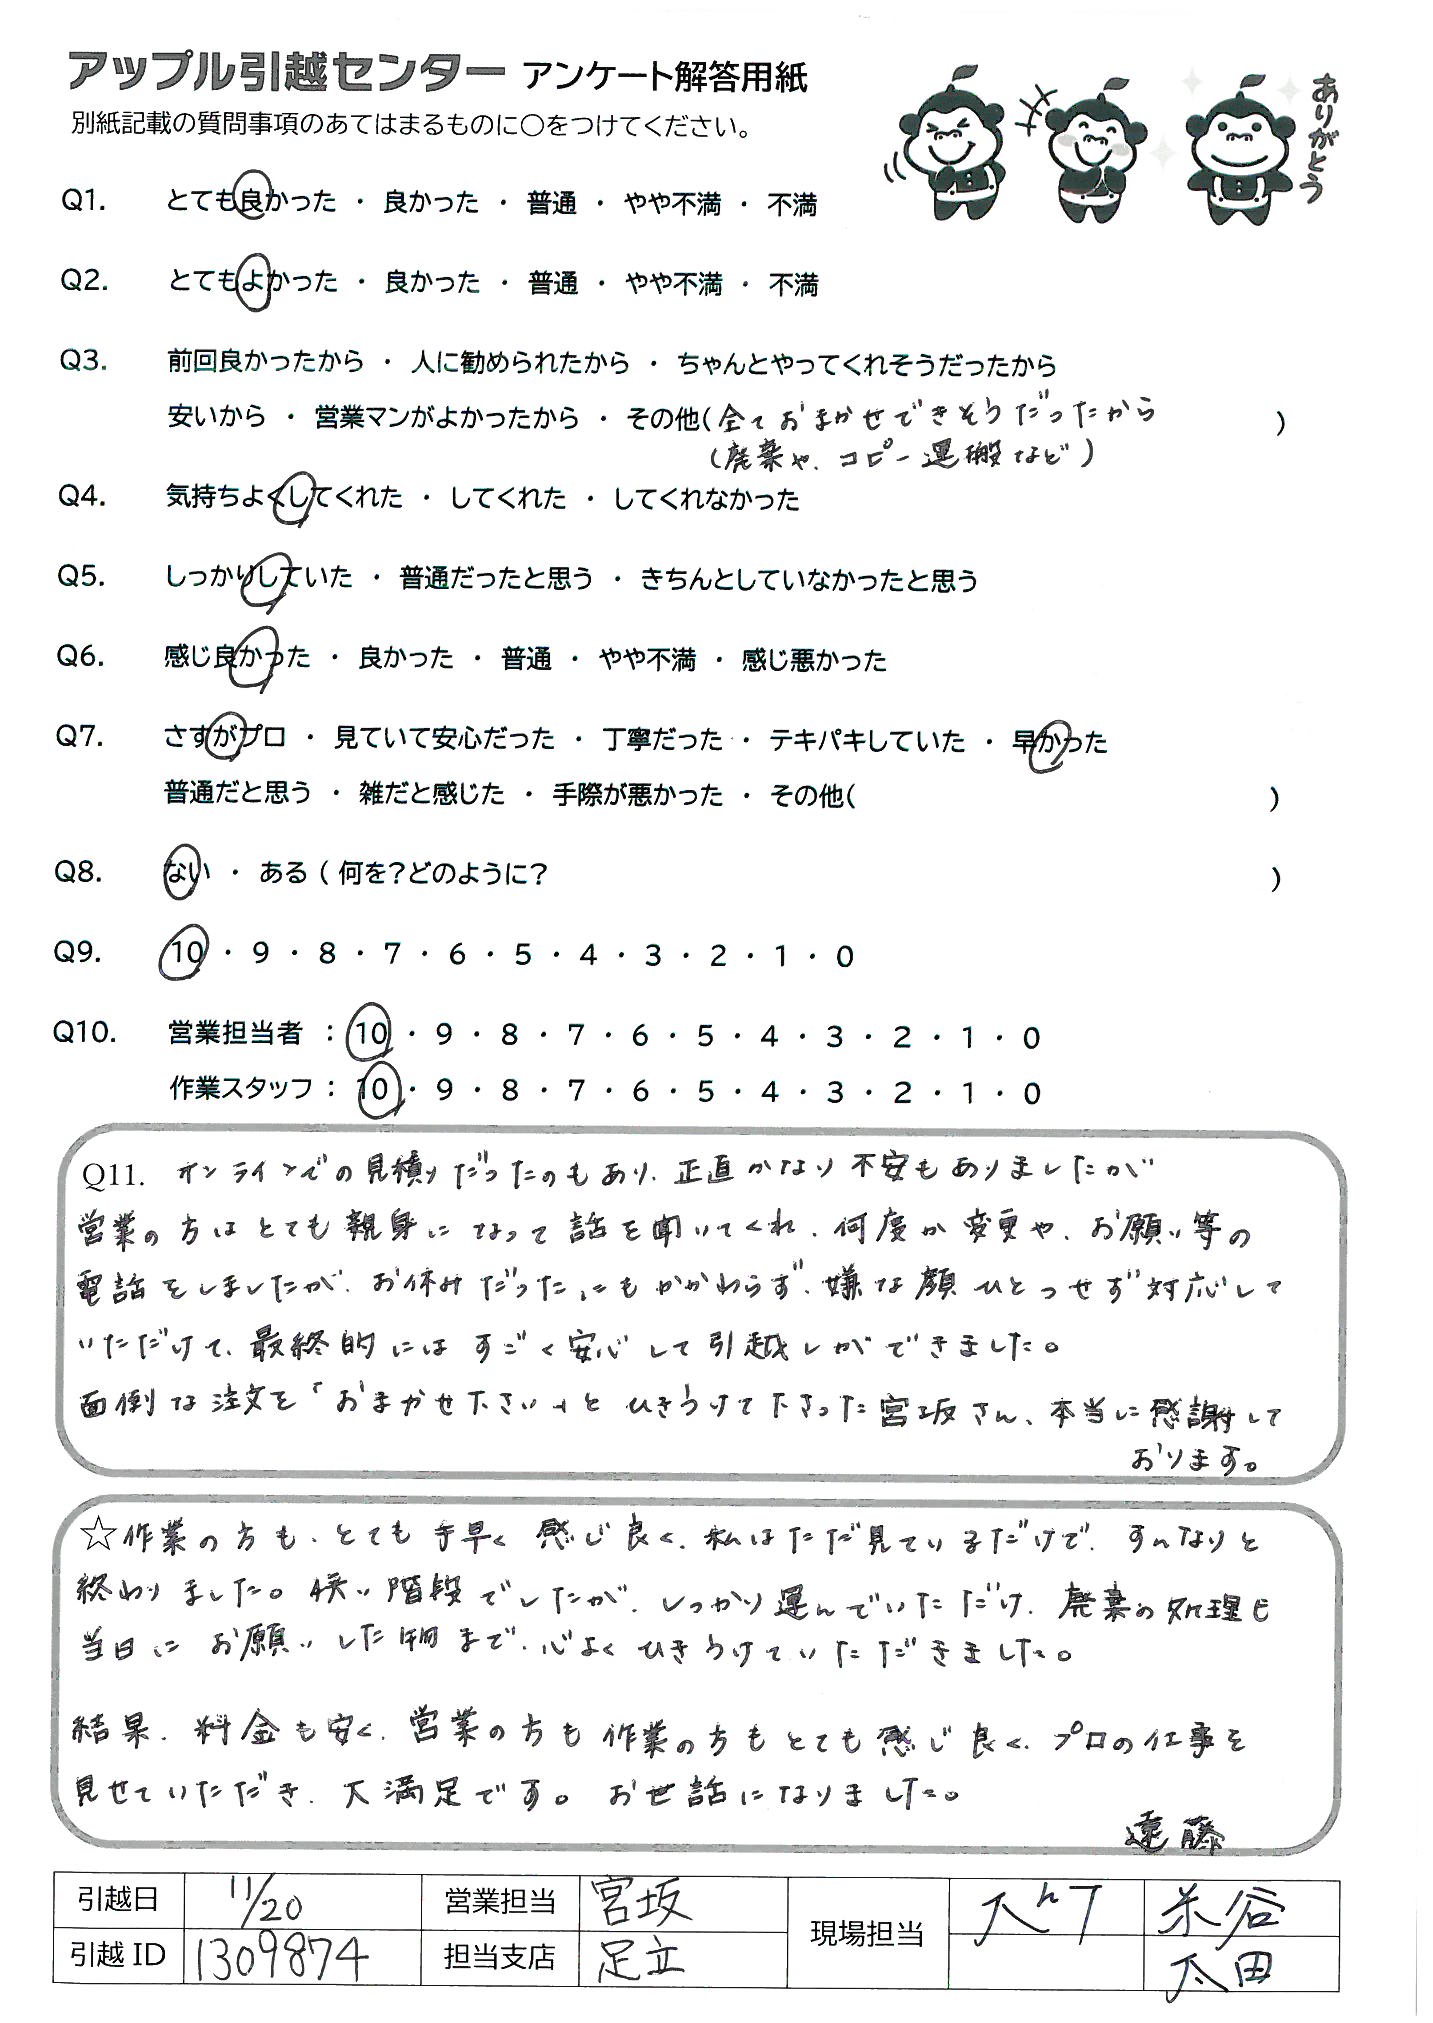 アップル引越センター アンケート解答用紙
別紙記載の質問事項のあてはまるものに○をつけてください。
ありがとう
Q1. とても良かった ・ 良かった ・ 普通 ・ やや不満 ・ 不満
Q2. とてもよかった ・ 良かった ・ 普通 ・ やや不満 ・ 不満
Q3. 前回良かったから ・ 人に勧められたから ・ ちゃんとやってくれそうだったから
安いから ・ 営業マンがよかったから ・ その他(全ておまかせできそうだったから )
(廃棄や、コピー運搬など)
Q4. 気持ちよくしてくれた ・ してくれた ・ してくれなかった
Q5. しっかりしていた ・ 普通だったと思う ・ きちんとしていなかったと思う
Q6. 感じ良かった ・ 良かった ・ 普通 ・ やや不満 ・ 感じ悪かった
Q7. さすがプロ ・ 見ていて安心だった ・ 丁寧だった ・ テキパキしていた ・ 早かった
普通だと思う ・ 雑だと感じた ・ 手際が悪かった ・ その他( )
Q8. ない ・ ある ( 何を?どのように? )
Q9. 10 ・ 9 ・ 8 ・ 7 ・ 6 ・ 5 ・ 4 ・ 3 ・ 2 ・ 1 ・ 0
Q10. 営業担当者 : 10 ・ 9 ・ 8 ・ 7 ・ 6 ・ 5 ・ 4 ・ 3 ・ 2 ・ 1 ・ 0
作業スタッフ : 10 ・ 9 ・ 8 ・ 7 ・ 6 ・ 5 ・ 4 ・ 3 ・ 2 ・ 1 ・ 0
Q11. オンラインでの見積りだったのもあり、正直かなり不安もありましたが
営業の方はとても親身になって話を聞いてくれ、何度か変更や、お願い等の
電話をしましたが、お休みだったにもかかわらず、嫌な顔ひとつせず対応して
いただけて、最終的にはすごく安心して引越しができました。
面倒な注文を「おまかせ下さい」とひきうけて下さった宮坂さん、本当に感謝して
おります。
☆作業の方も、とても手早く感じ良く、私はただ見ているだけで、すんなりと
終わりました。狭い階段でしたが、しっかり運んでいただけ、廃棄の処理も
当日にお願いした物まで、心よくひきうけていただきました。
結果、料金も安く、営業の方も作業の方もとても感じ良く、プロの仕事を
見せていただき、大満足です。お世話になりました。
遠藤
引越日 11/20 営業担当 宮坂 現場担当 米谷
引越ID 1309874 担当支店 足立 太田